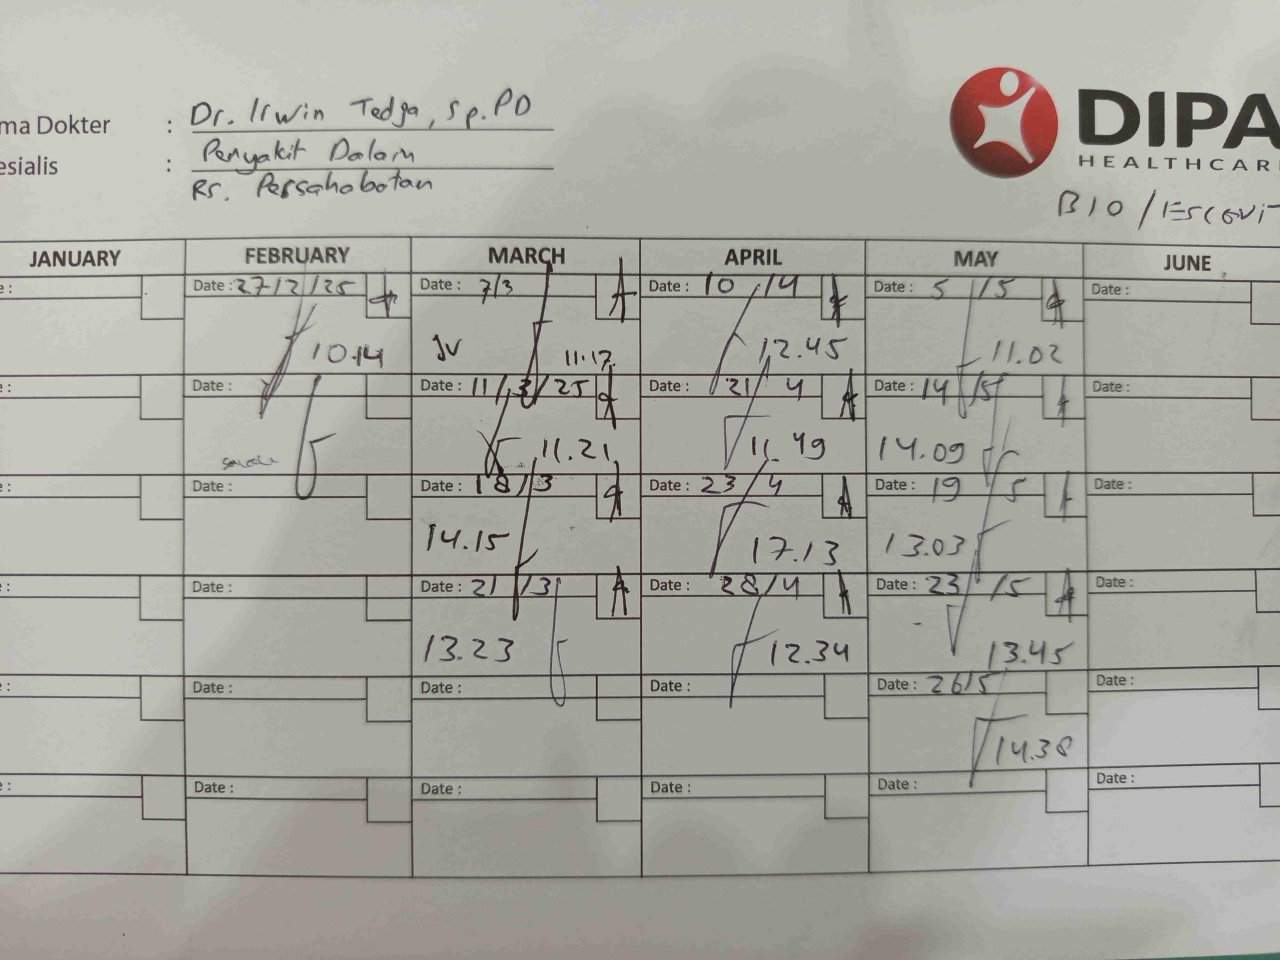 ma Dokter : Dr. Irwin Tedja, Sp.PD
esialis : Penyakit Dalam
Rs. Persahabatan
DIPA
HEALTHCARE
BIO / Escovit
JANUARY FEBRUARY MARCH APRIL MAY JUNE
e: Date: 27/2/25 Date: 7/3 Date: 10/4 Date: 5/5 Date:
10.14 JV 11.17 12.45 11.02
e: Date: Date: 11/3/25 Date: 21 4 Date: 14/5 Date:
11.21 11.49 14.09
e: Date: Date: 18/3 Date: 23 4 Date: 19 5 Date:
14.15 17.13 13.03
e: Date: Date: 21/3 Date: 28/4 Date: 23/5 Date:
13.23 12.34 13.45
e: Date: Date: Date: Date: 26/5 Date:
14.38
e: Date: Date: Date: Date: Date: